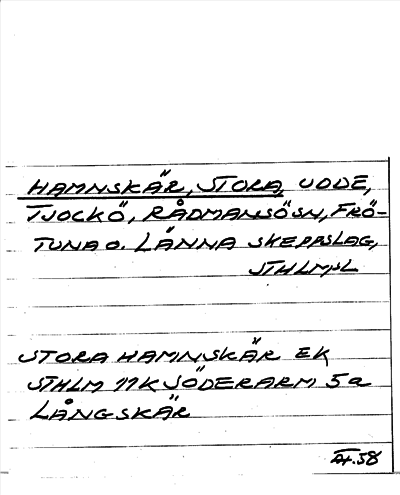 HAMNSKÄR, STORA, UDDE,
TJOCKÖ, RÅDMANSÖSN, FRÖ-
TUNA O. LÄNNA SKEPPSLAG,
STHLMSL
STORA HAMNSKÄR EK
STHLM 11K SÖDERARM 5a
LÅNGSKÄR